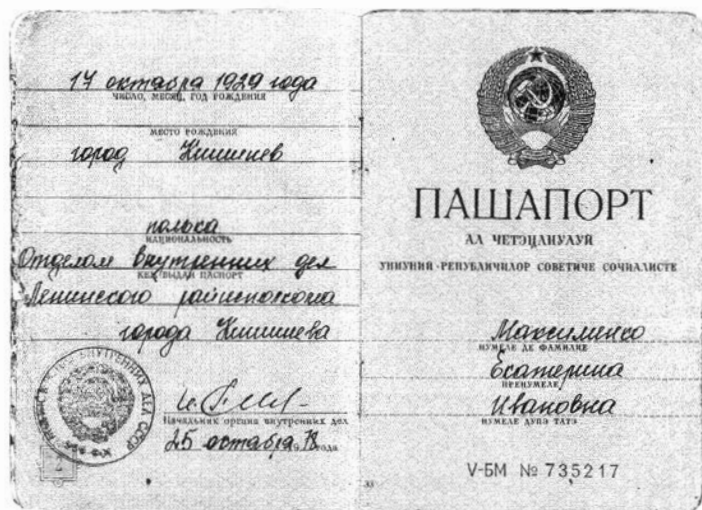 17 октября 1929 года
ЧИСЛО, МЕСЯЦ, ГОД РОЖДЕНИЯ
МЕСТО РОЖДЕНИЯ
город Кишинев
полька
НАЦИОНАЛЬНОСТЬ
Отделом внутренних дел
КЕМ ВЫДАН ПАСПОРТ
Ленинского райисполкома
города Кишинева
ВНУТРЕННИХ ДЕЛ СССР
Начальник органа внутренних дел
25 октября 1978 года
ПАШАПОРТ
АЛ ЧЕТЭЦЯНУЛУЙ
УНИУНИЙ РЕПУБЛИЧИЛОР СОВЕТИЧЕ СОЧИАЛИСТЕ
Максименко
НУМЕЛЕ ДЕ ФАМИЛИЕ
Екатерина
ПРЕНУМЕЛЕ
Ивановна
НУМЕЛЕ ДУПЭ ТАТЭ
V-БМ № 735217